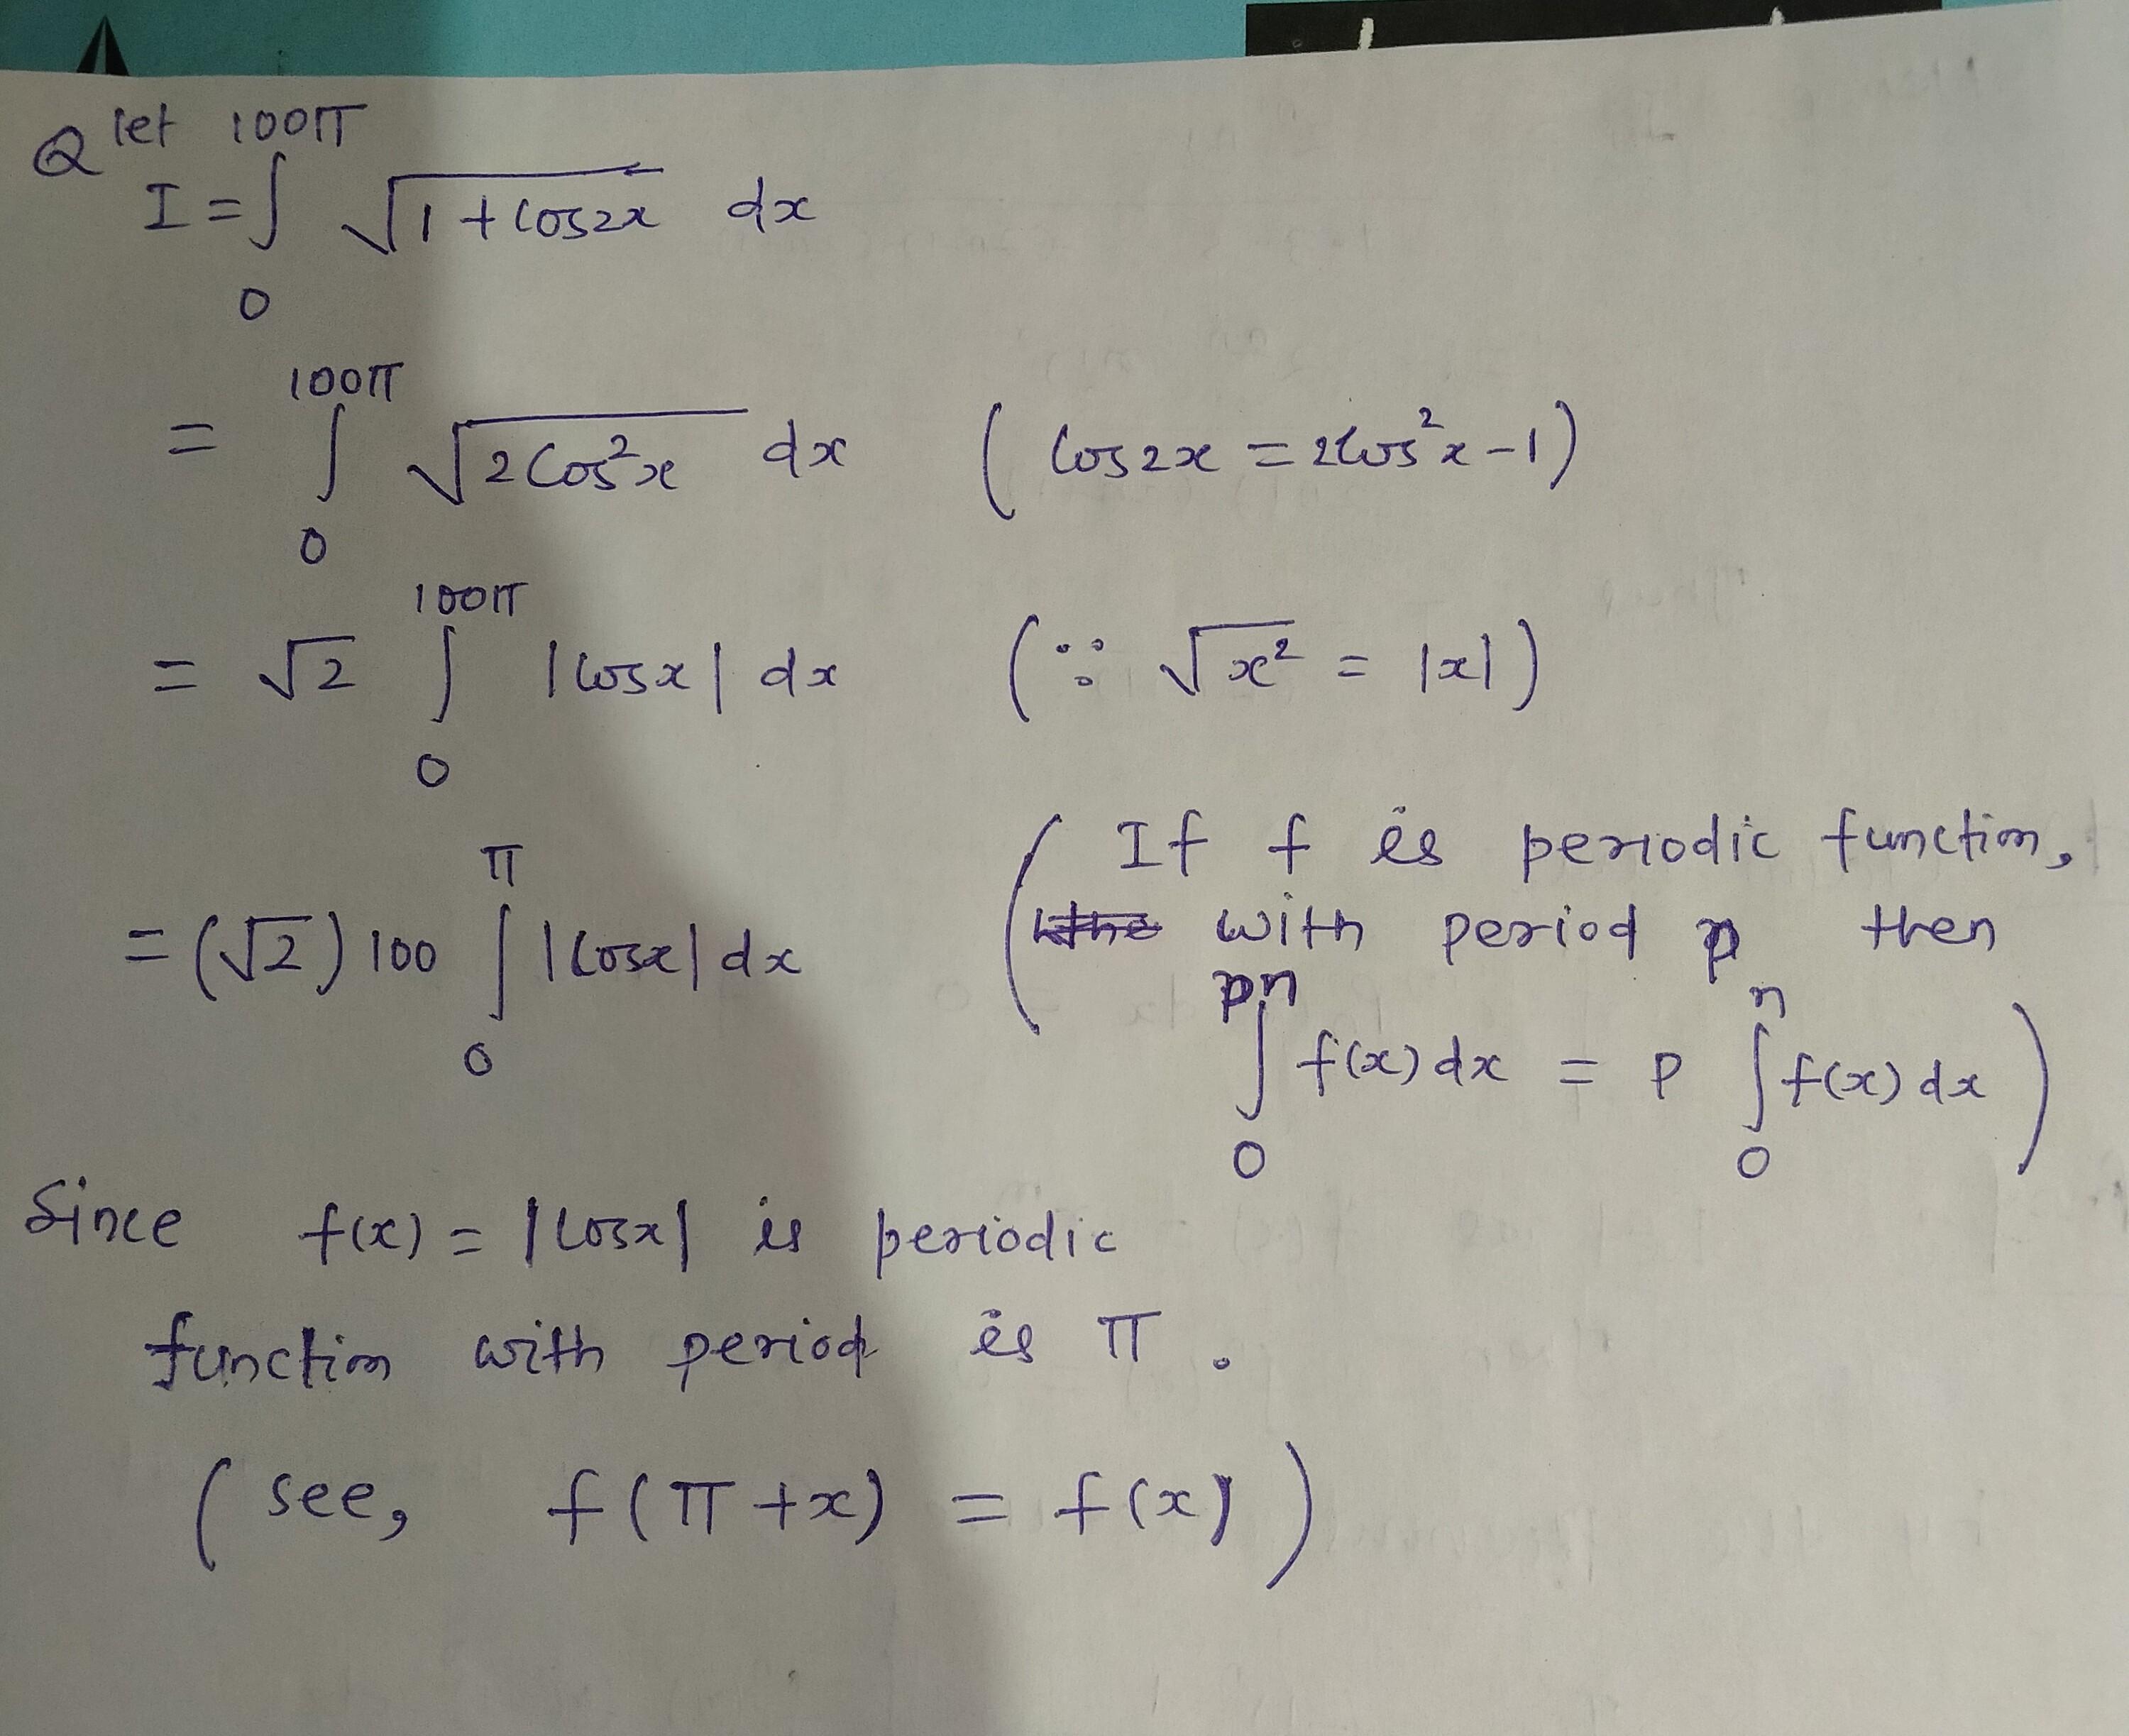 Q let
I = ∫₀^{100π} √(1 + cos2x) dx
= ∫₀^{100π} √(2cos²x) dx ( cos2x = 2cos²x - 1 )
= √2 ∫₀^{100π} |cosx| dx ( ∵ √x² = |x| )
= (√2) 100 ∫₀^{π} |cosx| dx
( If f is periodic function,
with period n then
∫₀^{pn} f(x) dx = p ∫₀^{n} f(x) dx )
Since f(x) = |cosx| is periodic
function with period is π .
( see, f(π + x) = f(x) )